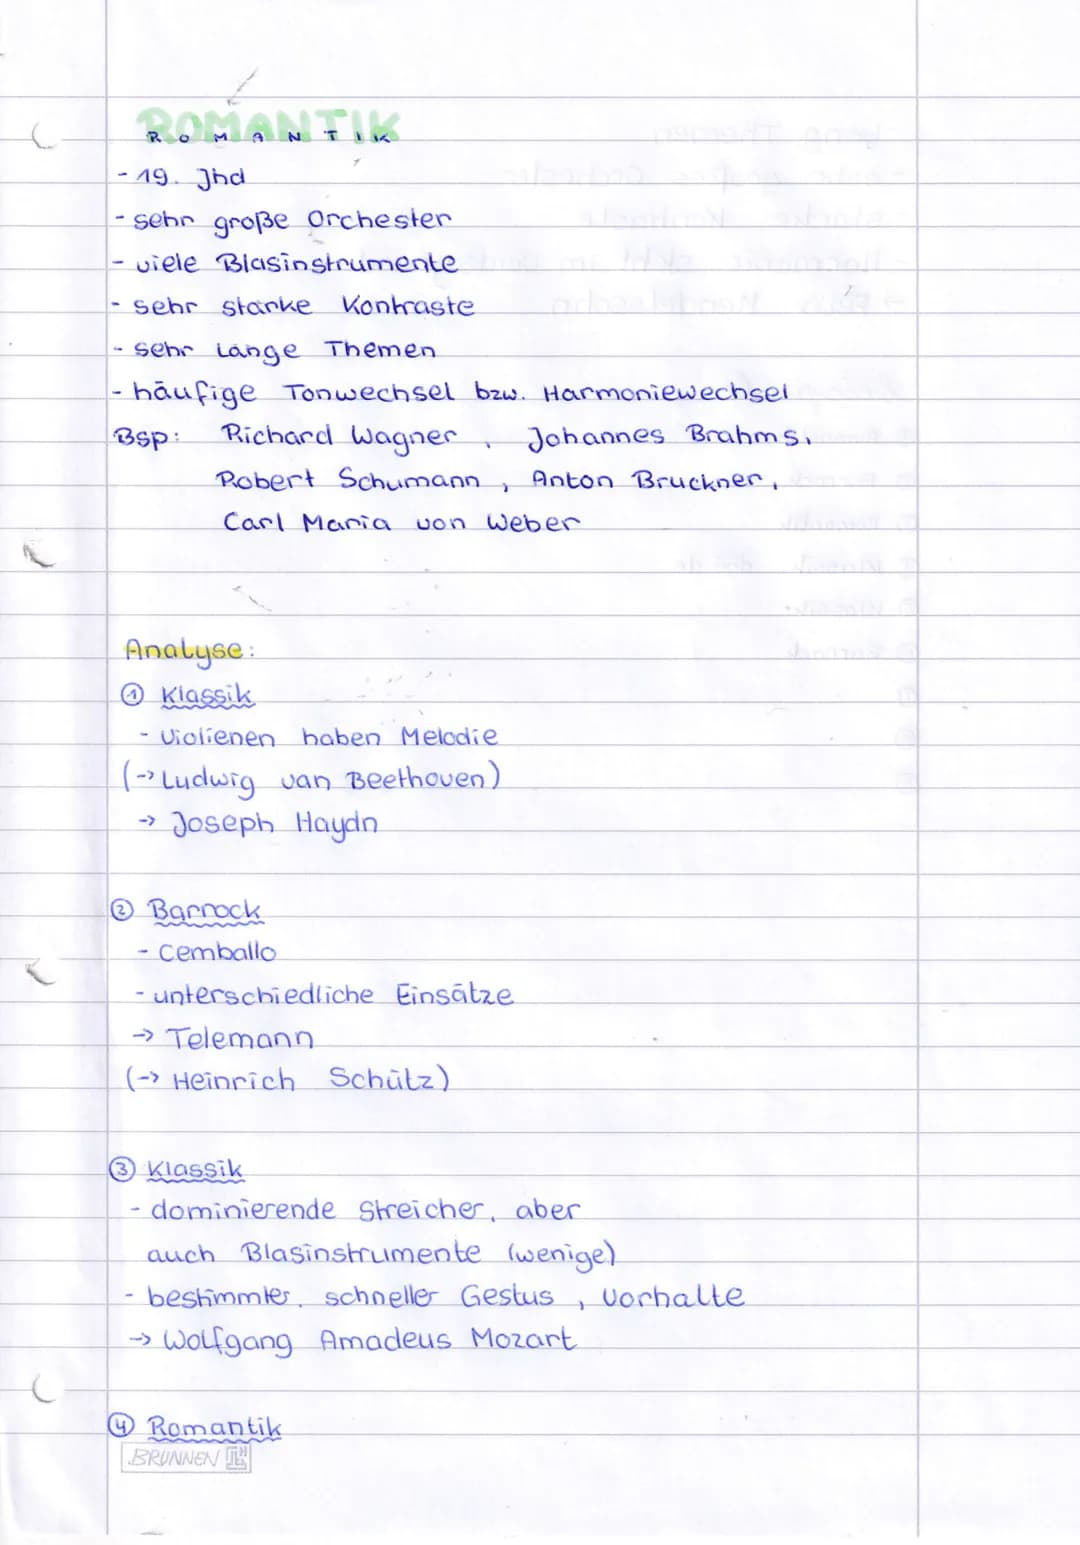 ROMANTIK
- 19. Jhd
- sehr große Orchester
- viele Blasinstrumente
- sehr starke Kontraste
- sehr lange Themen
- häufige Tonwechsel bzw. Harmoniewechsel
Bsp: Richard Wagner, Johannes Brahms,
Robert Schumann, Anton Bruckner,
Carl Maria von Weber
Analyse:
① Klassik
- Violienen haben Melodie
(-> Ludwig van Beethoven)
-> Joseph Haydn
② Barrock
- Cemballo
- unterschiedliche Einsätze
-> Telemann
(-> Heinrich Schütz)
③ Klassik
- dominierende Streicher, aber
auch Blasinstrumente (wenige)
- bestimmter, schneller Gestus, Vorhalte
-> Wolfgang Amadeus Mozart
④ Romantik
BRUNNEN